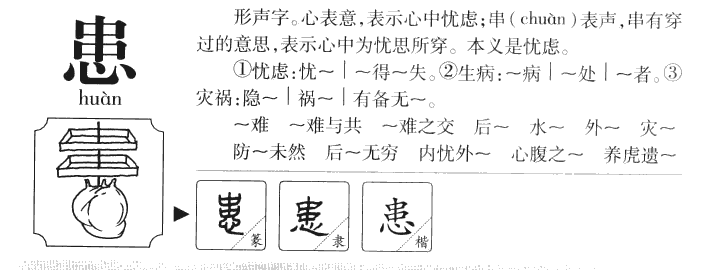 患
huàn
形声字。心表意，表示心中忧虑；串（chuàn）表声，串有穿
过的意思，表示心中为忧思所穿。本义是忧虑。
①忧虑：忧～｜～得～失。②生病：～病｜～处｜～者。③
灾祸：隐～｜祸～｜有备无～。
～难 ～难与共 ～难之交 后～ 水～ 外～ 灾～
防～未然 后～无穷 内忧外～ 心腹之～ 养虎遗～
患 篆 患 隶 患 楷